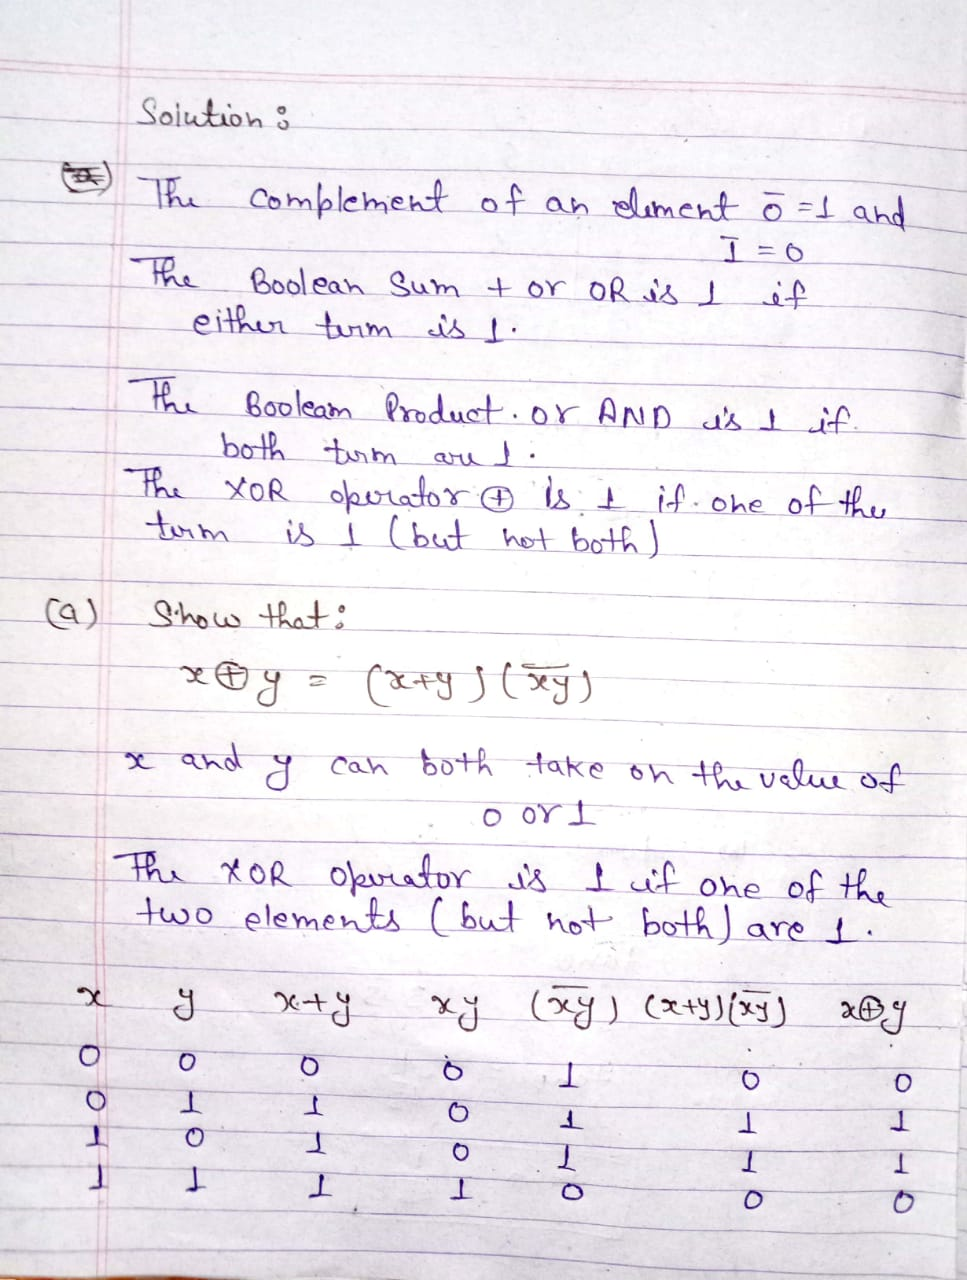 Solution :
The complement of an element 0̅ = 1 and
1̅ = 0
The Boolean Sum + or OR is 1 if
either term is 1.
The Boolean Product . or AND is 1 if.
both term are 1.
The XOR operator ⊕ is 1 if one of the
term is 1 (but not both)
(a) Show that :
x ⊕ y = (x+y) (x̅y̅)
x and y can both take on the value of
0 or 1
The XOR operator is 1 if one of the
two elements (but not both) are 1.
x y x+y xy (x̅y̅) (x+y)(x̅y̅) x⊕y
0 0 0 0 1 0 0
0 1 1 0 1 1 1
1 0 1 0 1 1 1
1 1 1 1 0 0 0